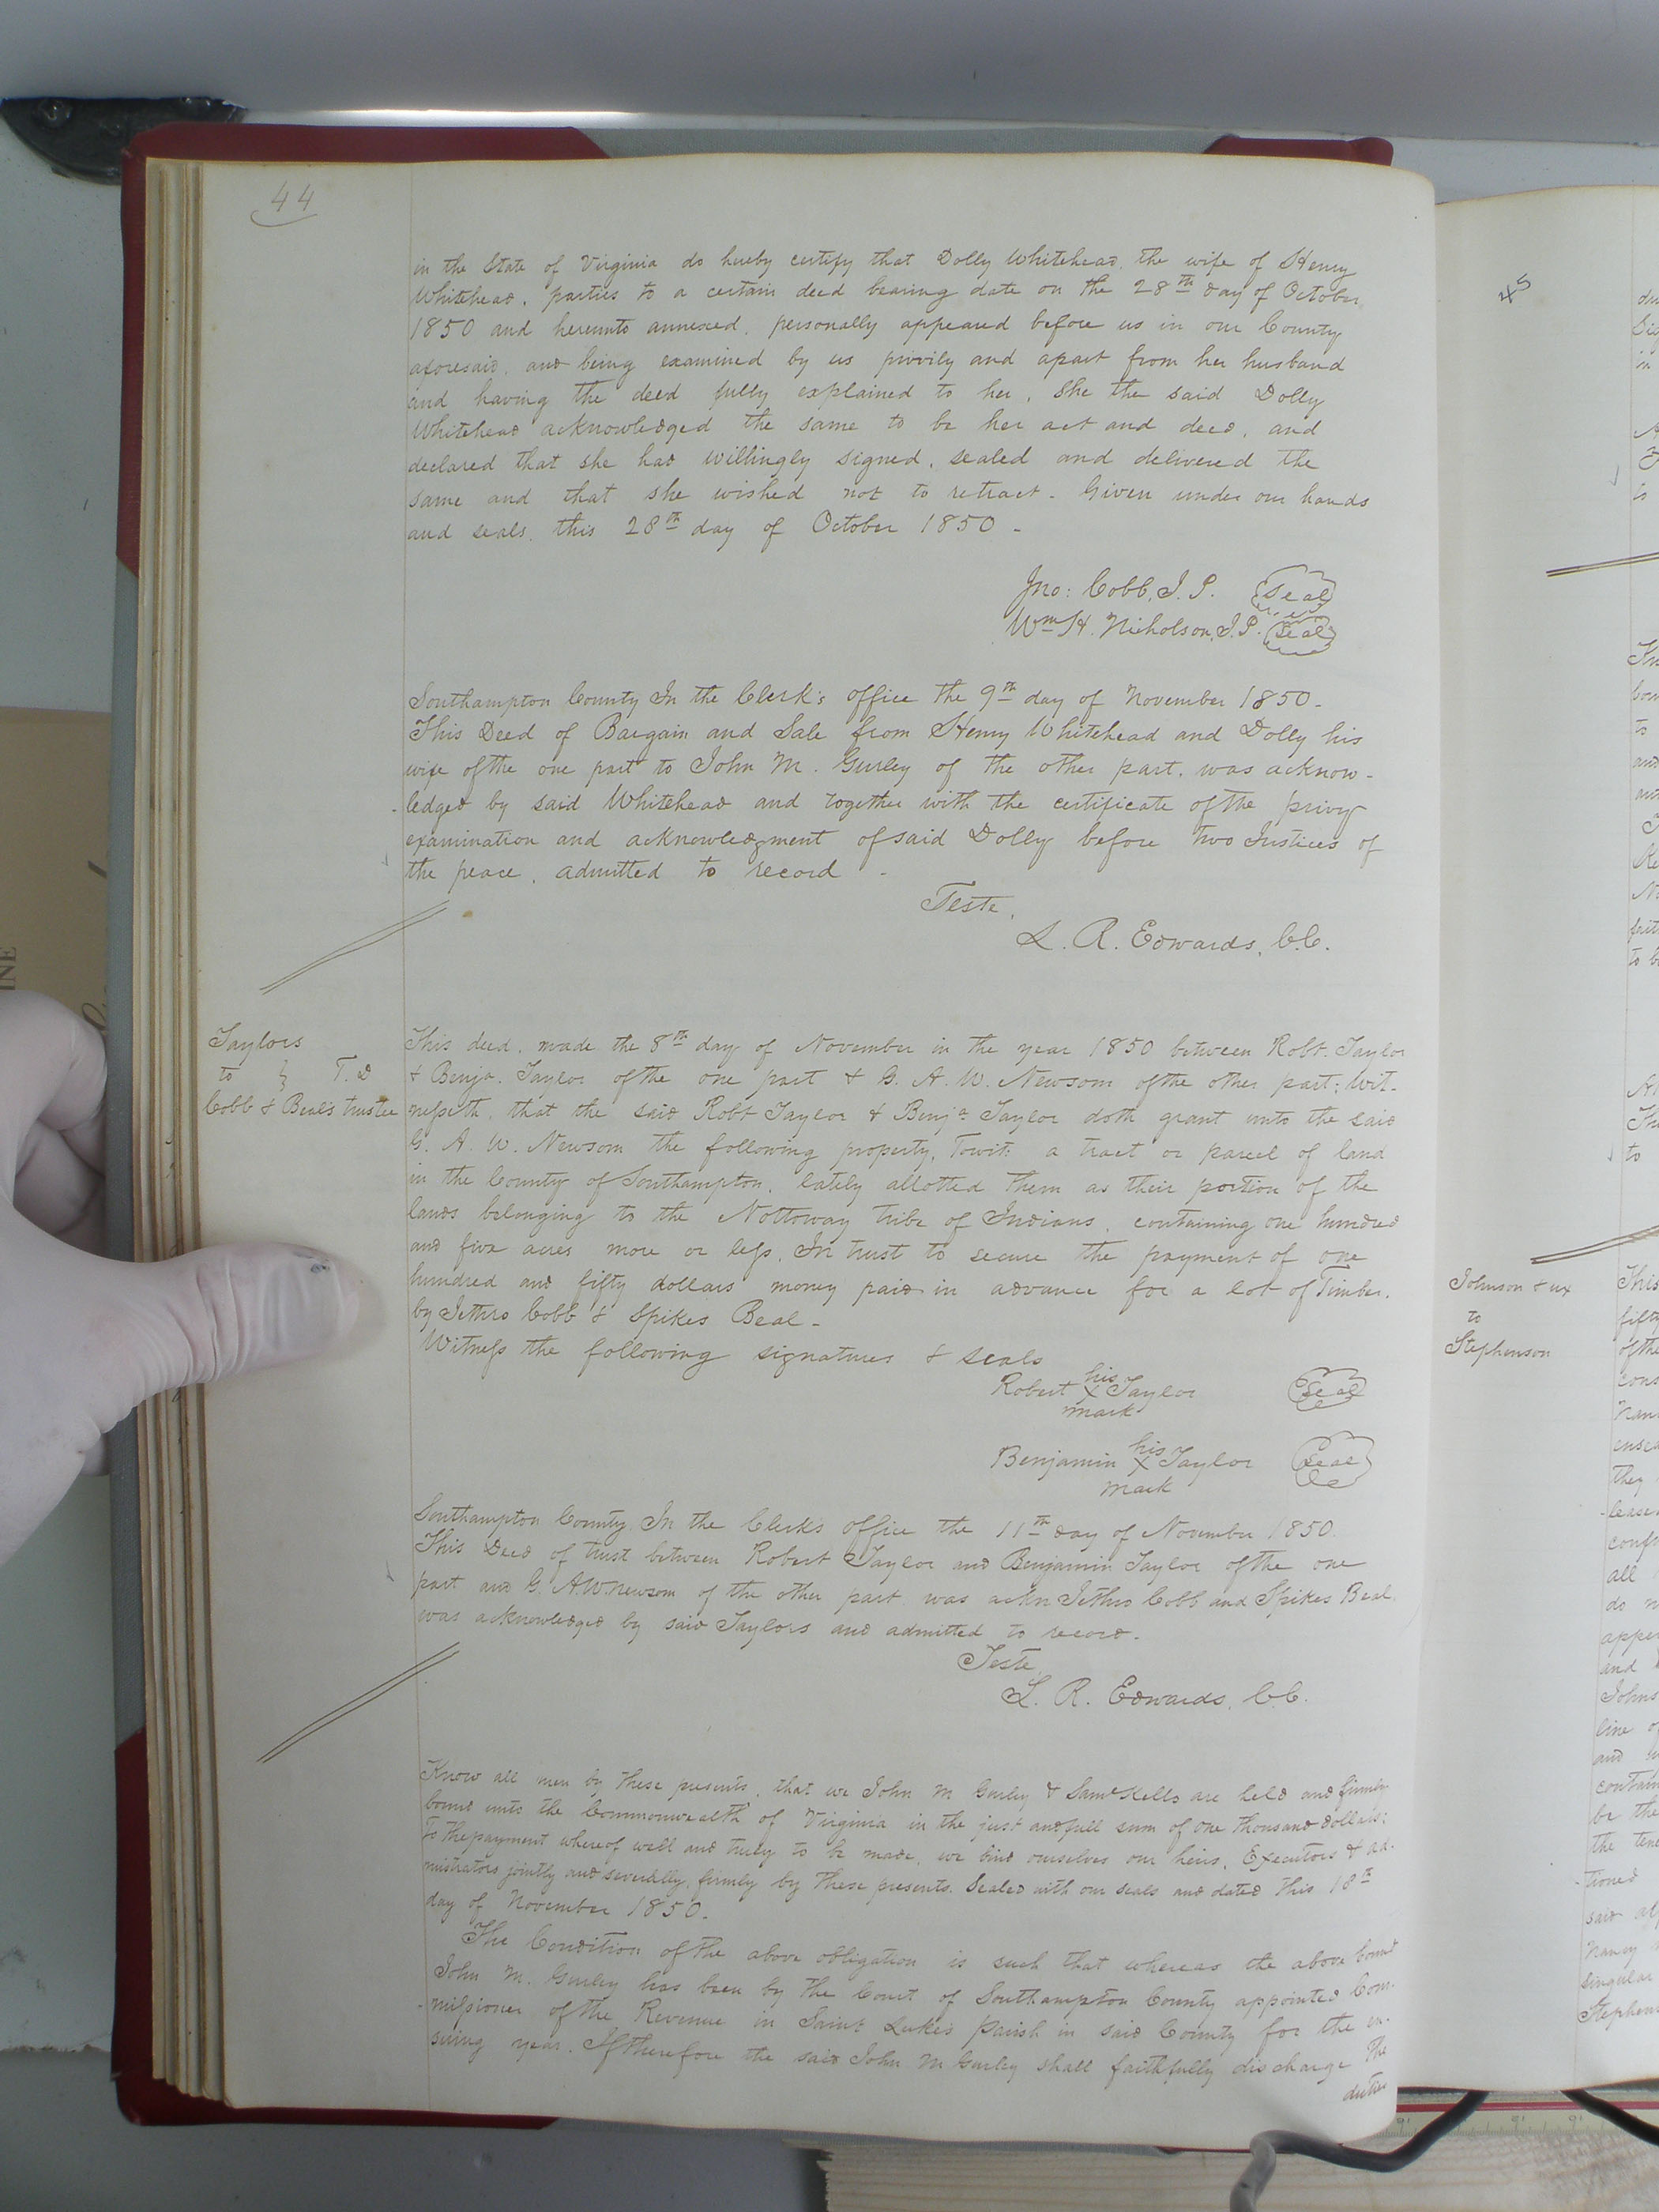 44
in the State of Virginia do hereby certify that Dolly Whitehead, the wife of Henry
Whitehead, parties to a certain deed bearing date on the 28th day of October
1850 and hereunto annexed, personally appeared before us in our County
aforesaid, and being examined by us privily and apart from her husband
and having the deed fully explained to her, She the said Dolly
Whitehead acknowledged the same to be her act and deed, and
declared that she had willingly signed, sealed and delivered the
same and that she wished not to retract - Given under our hands
and seals, this 28th day of October 1850 -
Jno: Cobb, J. P. Seal
Wm H. Nicholson, J. P. Seal
Southampton County In the Clerk's office the 9th day of November 1850 -
This Deed of Bargain and Sale from Henry Whitehead and Dolly his
wife of the one part to John M. Gurley of the other part, was acknow-
-ledged by said Whitehead and together with the certificate of the privy
examination and acknowledgment of said Dolly before two Justices of
the peace, admitted to record -
Teste,
L. R. Edwards, C.C.
Taylors
to } T. D
Cobb & Beal's trustee
This deed, made the 8th day of November in the year 1850 between Robt. Taylor
& Benja. Taylor of the one part & G. A. W. Newsom of the other part; Wit-
nesseth, that the said Robt Taylor & Benja Taylor doth grant unto the said
G. A. W. Newsom the following property, Towit: a tract or parcel of land
in the County of Southampton, lately allotted them as their portion of the
lands belonging to the Nottoway tribe of Indians, containing one hundred
and five acres more or less, In trust to secure the payment of one
hundred and fifty dollars money paid in advance for a lot of Timber,
by Jethro Cobb & Spikes Beal -
Witness the following signatures & seals
Robert his X mark Taylor Seal
Benjamin his X mark Taylor Seal
Southampton County, In the Clerk's office the 11th day of November 1850.
This Deed of trust between Robert Taylor and Benjamin Taylor of the one
part and G. A W Newsom of the other part was ackn Jethro Cobb and Spikes Beal
was acknowledged by said Taylors and admitted to record.
Teste
L. R. Edwards, C.C.
Know all men by these presents, that we John M Gurley & Saml Kello are held and firmly
bound unto the Commonwealth of Virginia in the just and full sum of one thousand dollars;
To the payment whereof well and truly to be made, we bind ourselves our heirs, Executors & ad-
ministrators jointly and severally, firmly by these presents. Sealed with our seals and dated this 18th
day of November 1850.
The Condition of the above obligation is such that whereas the above bound
John M. Gurley has been by the Court of Southampton County appointed Com-
-missioner of the Revenue in Saint Lukes Parish in said County for the en-
suing year. If therefore the said John M Gurley shall faithfully discharge The
duties
45
Johnson & ux
to
Stephenson